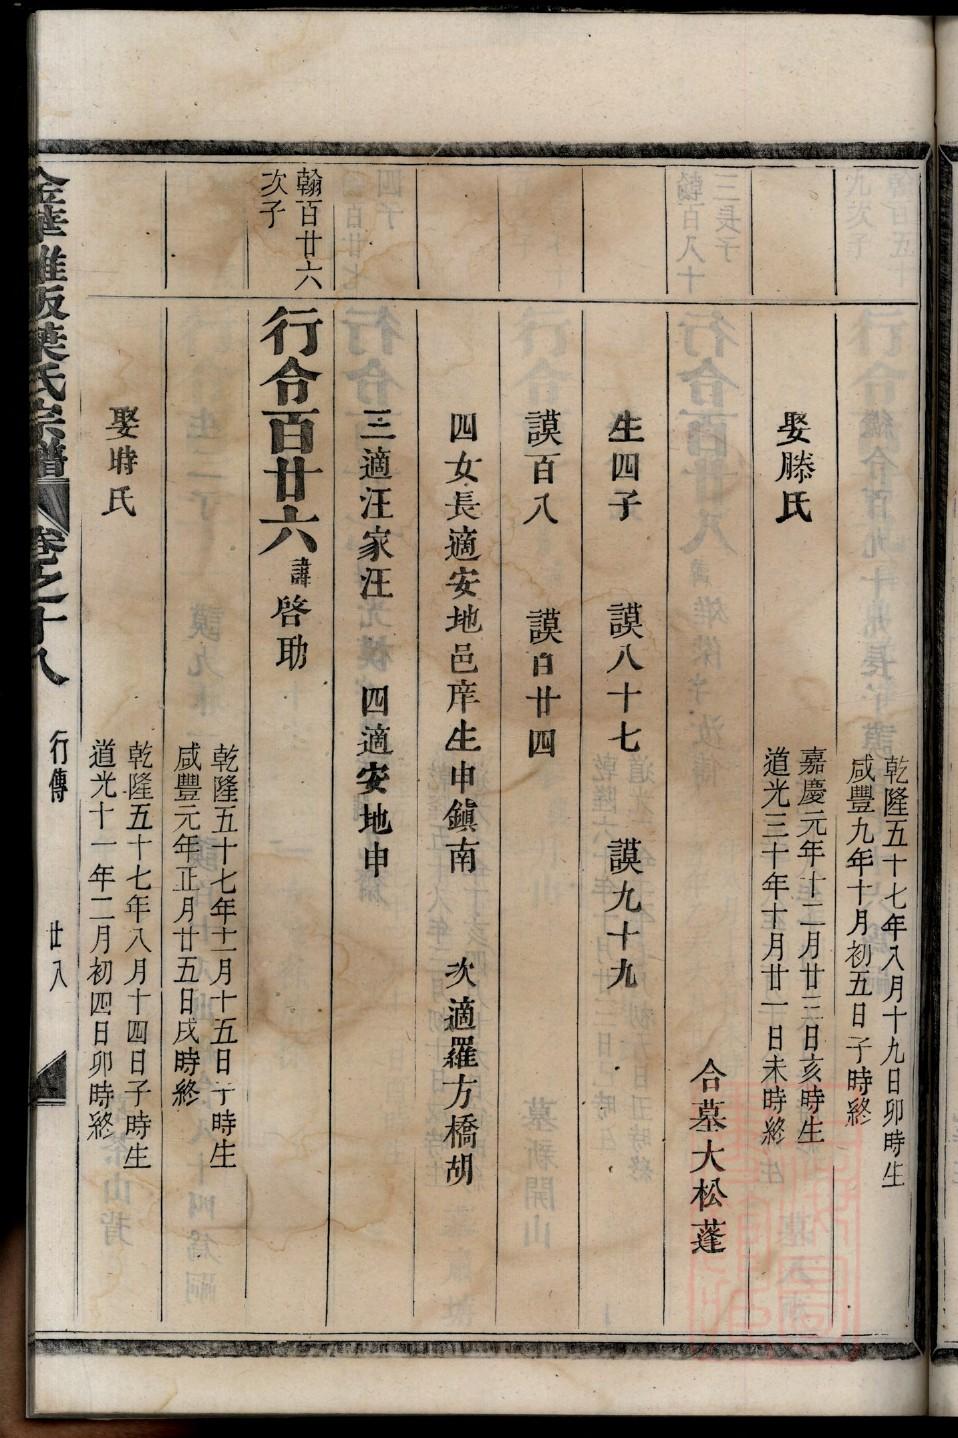 乾隆五十七年八月十九日卯時生
咸豐九年十月初五日子時終
娶滕氏
嘉慶元年十二月廿三日亥時生
道光三十年十月廿一日未時終
合墓大松蓬
生四子 謨八十七 謨九十九
謨百八 謨百廿四
四女長適安地邑庠生申鎮南 次適羅方橋胡
三適汪家汪 四適安地申
翰百廿六
次子
行令百廿六諱啓助
乾隆五十七年十一月十五日子時生
咸豐元年正月廿五日戌時終
娶時氏
乾隆五十七年八月十四日子時生
道光十一年二月初四日卯時終
葉氏宗譜 卷之十八 行傳 廿八